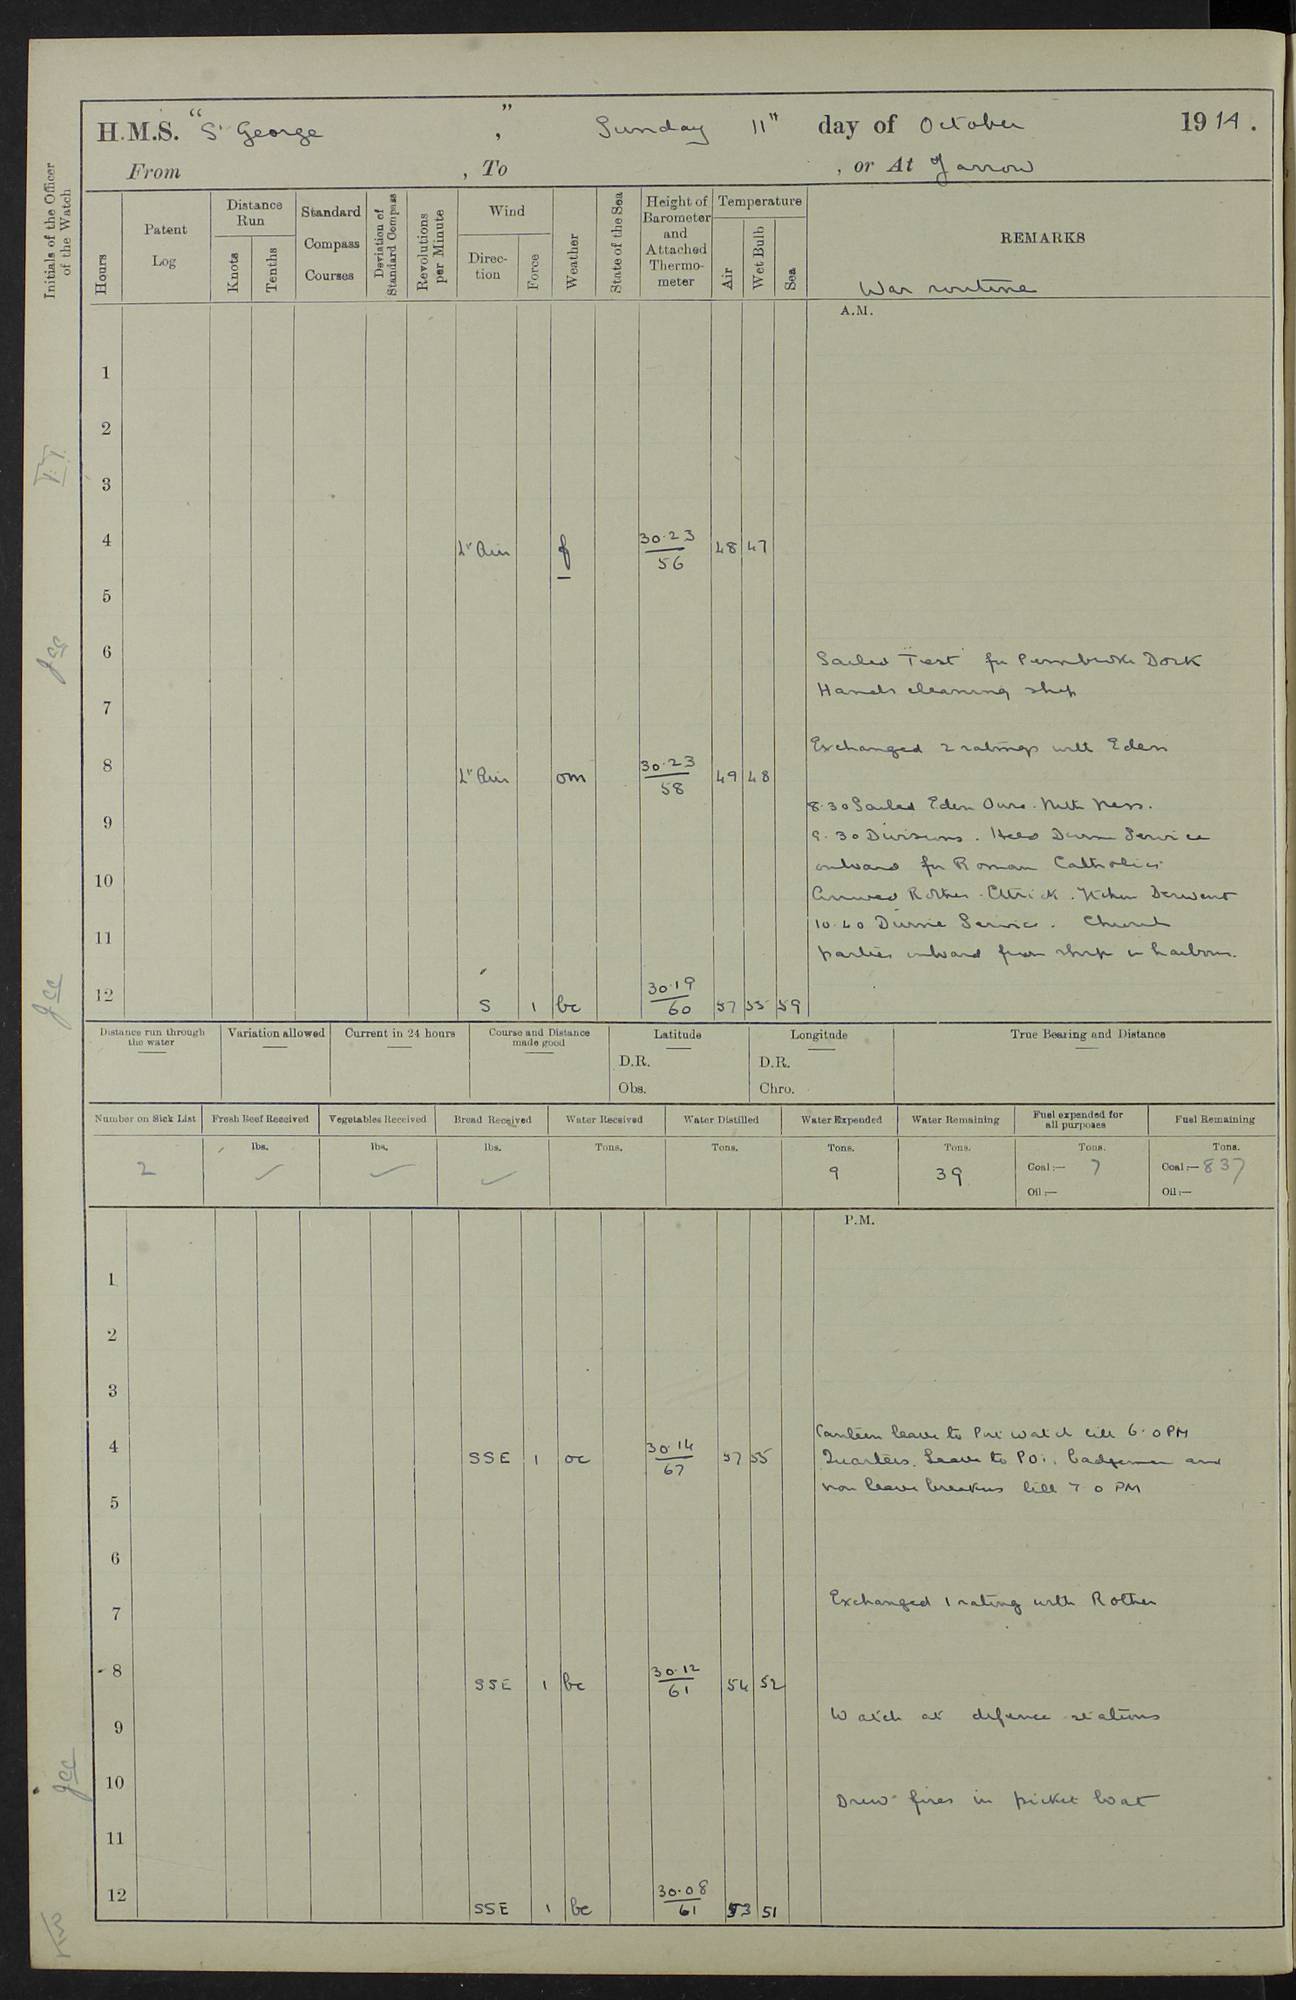 H.M.S. "St George", Sunday 11th day of October 1914.
From , To , or At Jarrow
Initials of the Officer of the Watch
Hours
Patent Log
Distance Run
Knots
Tenths
Standard Compass Courses
Deviation of Standard Compass
Revolutions per Minute
Wind
Direction
Force
Weather
State of the Sea
Height of Barometer and Attached Thermometer
Temperature
Air
Wet Bulb
Sea
REMARKS
War routine
A.M.
1
2
3
4 Lt Air f 30.23 56 48 47
5
6
Sailed "Test" for Pembroke Dock
Hands cleaning ship
7
Exchanged 2 ratings with Eden
8 Lt Air om 30.23 58 49 48
8.30 Sailed Eden Ouse Nith Ness.
9
9.30 Divisions. Held Divine Service
onboard for Roman Catholics
10
Arrived Rother. Ettrick. Itchen Derwent
10.40 Divine Service. Church
11
parties onboard from ships in harbour.
12 S 1 bc 30.19 60 57 55 59
Distance run through the water
Variation allowed
Current in 24 hours
Course and Distance made good
Latitude
D.R.
Obs.
Longitude
D.R.
Chro.
True Bearing and Distance
Number on Sick List
Fresh Beef Received
Vegetables Received
Bread Received
Water Received
Water Distilled
Water Expended
Water Remaining
Fuel expended for all purposes
Fuel Remaining
lbs. lbs. lbs. Tons. Tons. Tons. Tons. Tons. Tons.
2 9 39 Coal:— 7 Coal:— 837
Oil:— Oil:—
P.M.
1
2
3
Canteen leave to Port watch till 6.0 PM
4 SSE 1 oc 30.14 67 57 55
Quarters. Leave to POs, Badgemen and
non leave breakers till 7 0 PM
5
6
7
Exchanged 1 rating with Rother
8 SSE 1 bc 30.12 61 54 52
9
Watch at defence stations
10
Drew fires in picket boat
11
12 SSE 1 bc 30.08 61 53 51
Jcc
Jcc
Jcc